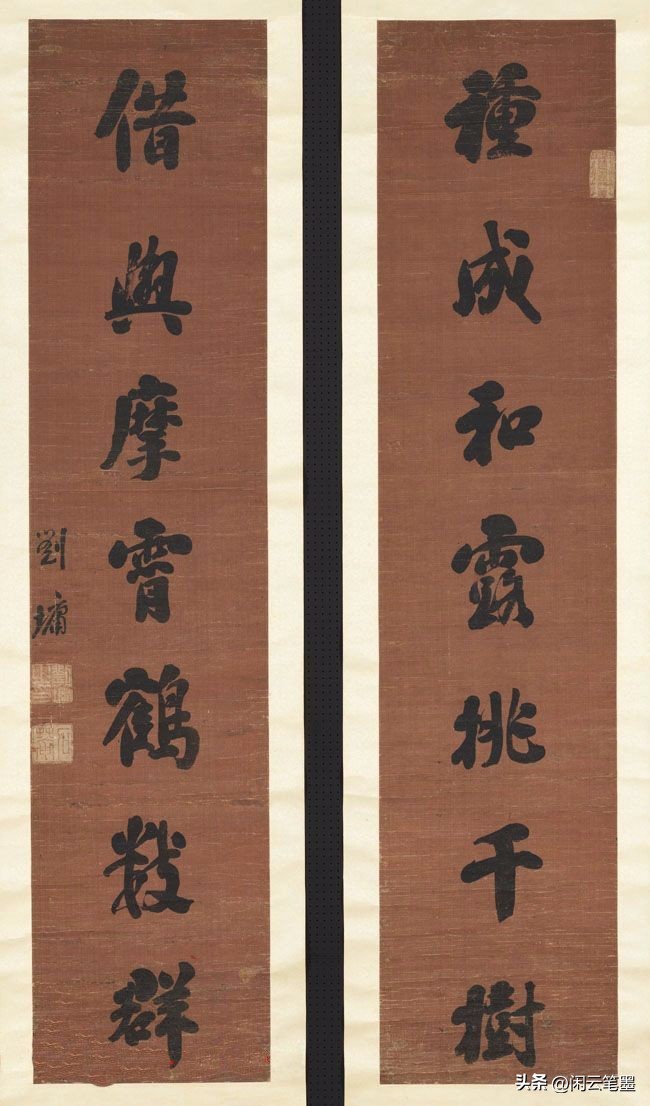 種成和露桃千樹
借與摩霄鶴數群
劉墉
头条 @闲云笔墨